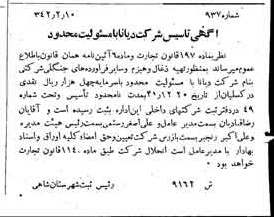 شماره ۹۳۷ ۳۴۲/۲/۱۰
آگهی تاسیس شرکت دیانا با مسئولیت محدود
نظر بماده ۱۹۷ قانون تجارت و ماده ۶ آئین نامه همان قانون باطلاع
عموم میرساند بمنظور تهیه ذغال وهیزم وسایر فرآورده‌های جنگلی شرکتی
بنام شرکت دیانا با مسئولیت محدود بسرمایه چهل هزار ریال نقدی
در کسلیان از تاریخ ۴۱/۱۲/۲۰ بمدت نامحدود تأسیس و تحت شماره
۴۹ دردفتر ثبت شرکتهای داخلی این اداره بثبت رسیده است و آقایان
رضا قبادیان بسمت مدیر عامل و علی‌اصغر رستمی بسمت رئیس هیئت مدیره
و علی‌اکبر رنجبر بسمت بازرس شرکت تعیین و حق امضاء کلیه اوراق و اسناد
بهادار با مدیر عامل است انحلال شرکت طبق ماده ۱۱۴ قانون تجارت
خواهد بود
ش ۹۱۶۲ رئیس ثبت شهرستان شاهی